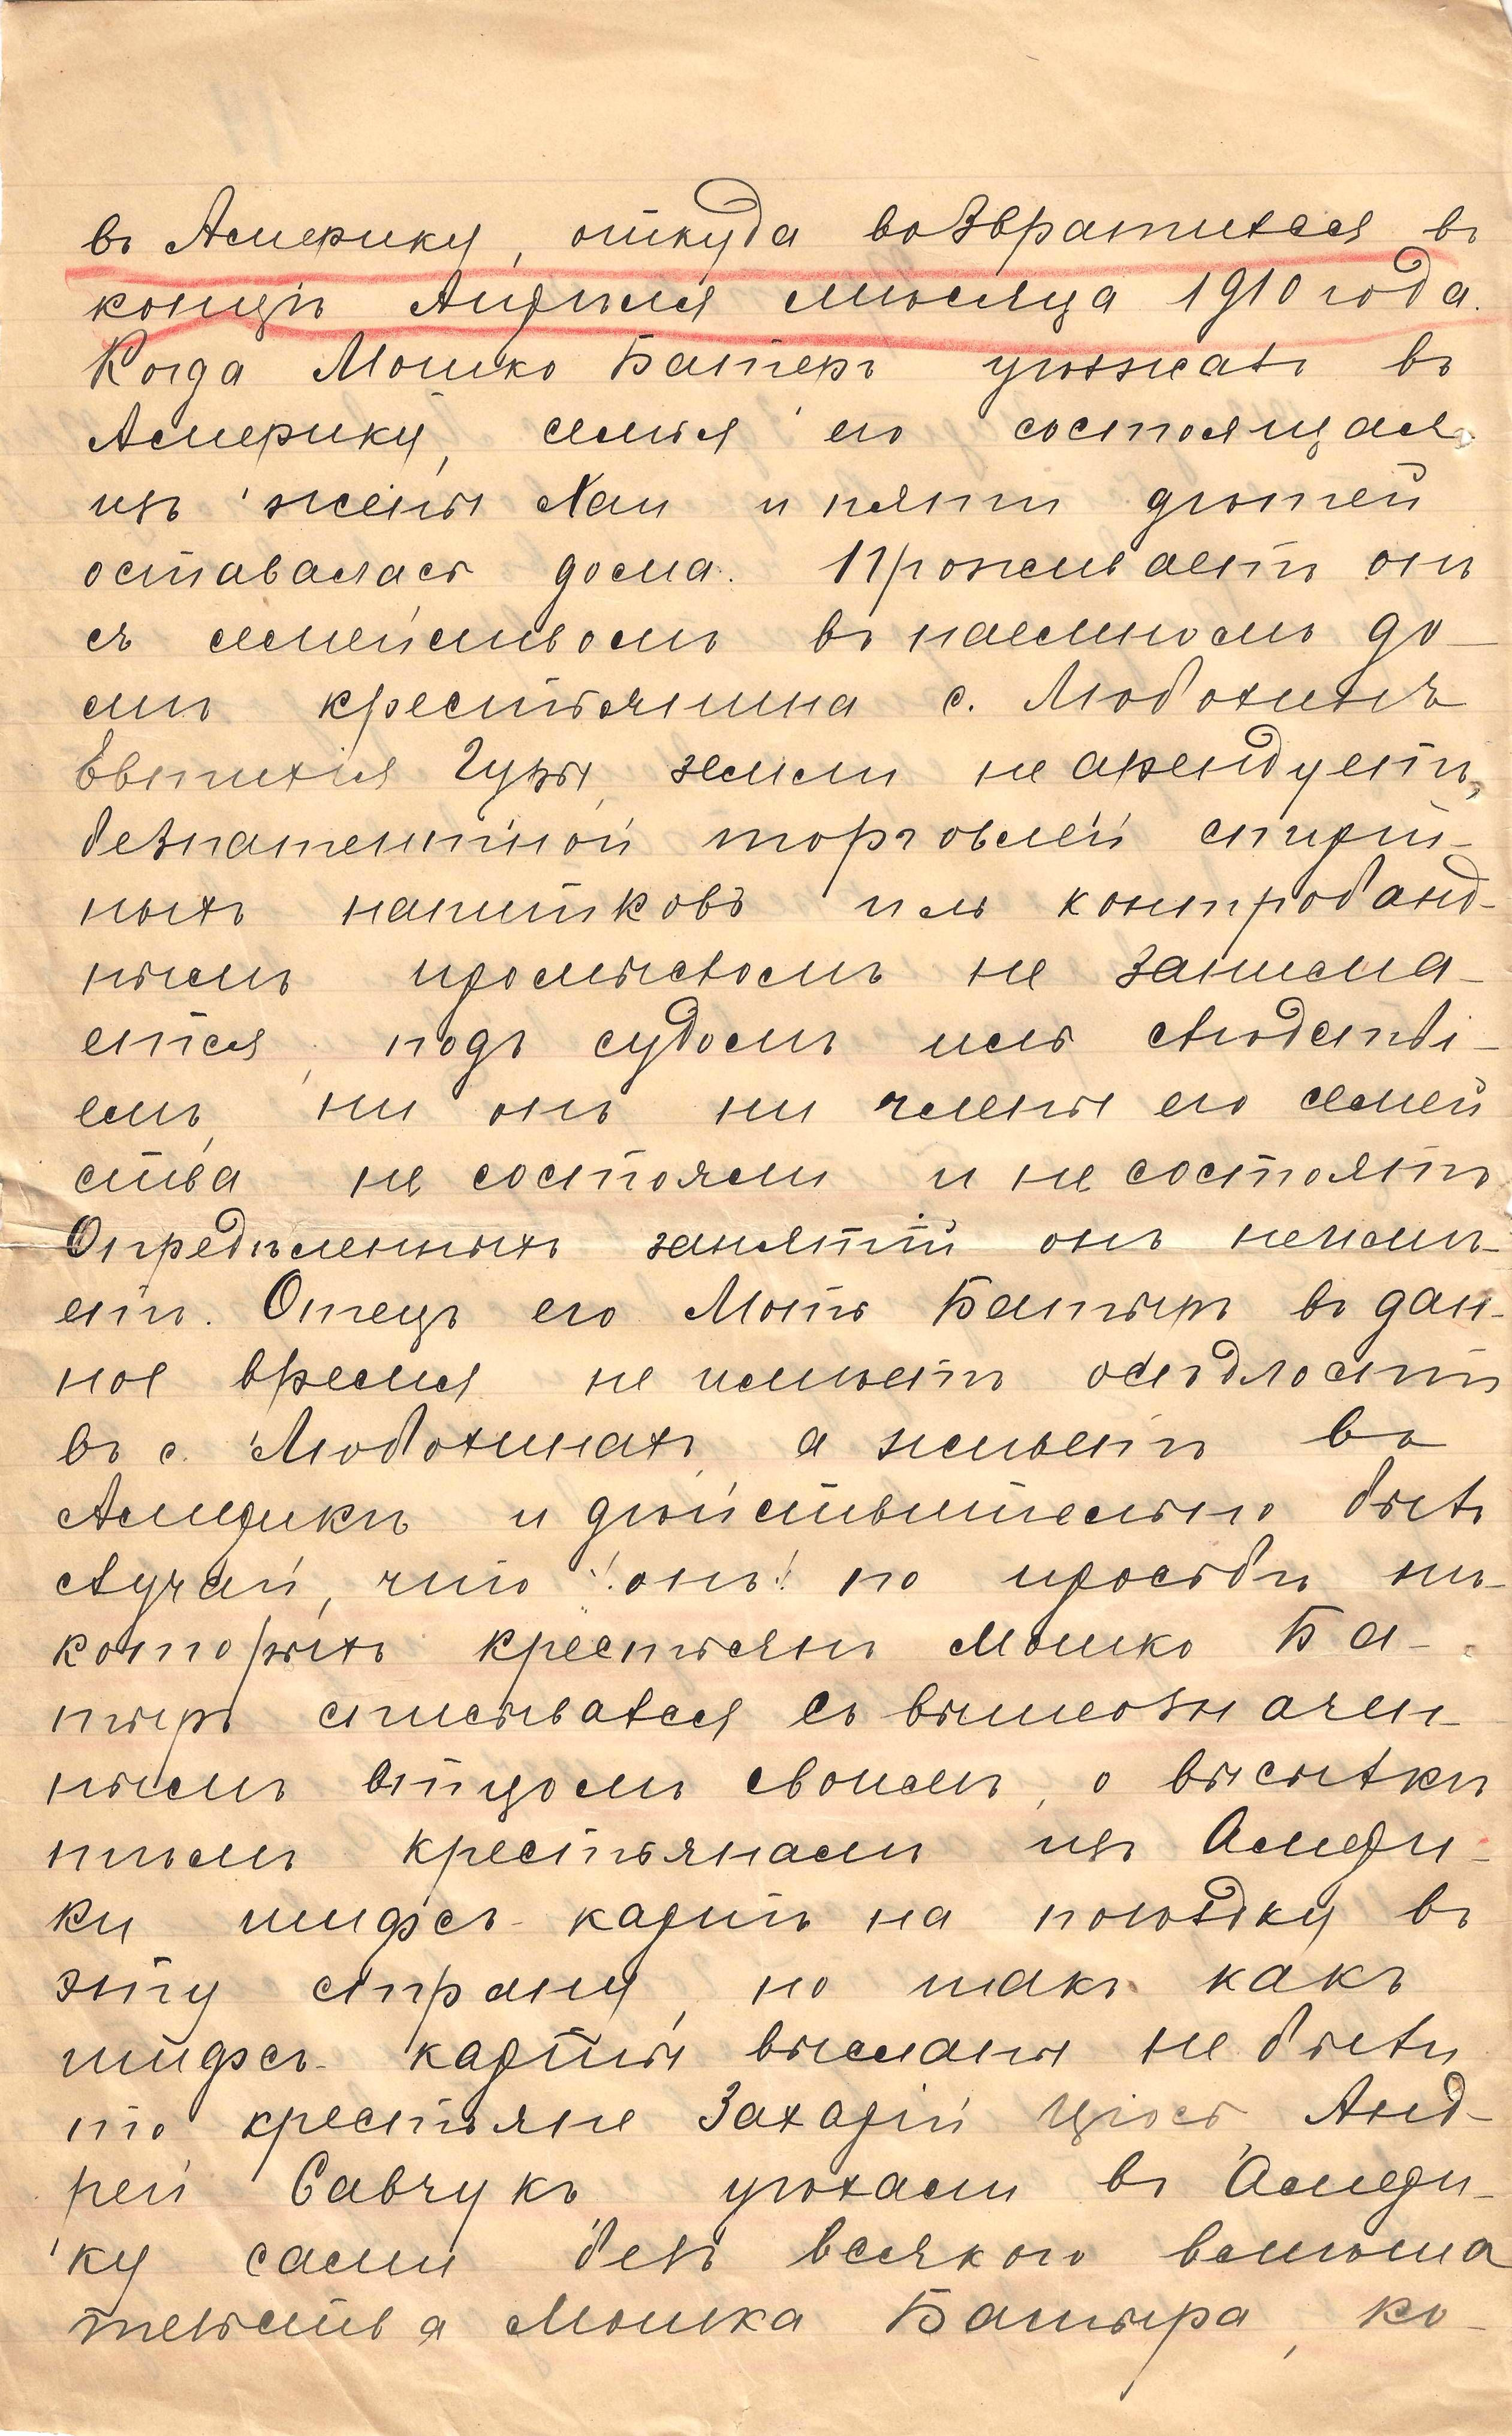 въ Америку, откуда возвратился въ
концѣ Апрѣля мѣсяца 1910 года.
Когда Мошко Батеръ уѣзжалъ въ
Америку, семья его состоящая
изъ жены Хаи и пяти дѣтей
оставалась дома. Проживаетъ онъ
съ семействомъ въ наемномъ до-
мѣ крестьянина с. Любохинъ
Евтихія Гуры, земли не арендуетъ,
безпатентной торговлей спирт-
ныхъ напитковъ иль контробанд-
нымъ промысломъ не занима-
ется, подъ судомъ иль слѣдстві-
емъ, ни онъ ни члены его семей
ства не состояли и не состоятъ
Опредѣленныхъ занятій онъ неимѣ-
етъ. Отецъ его Моть Батыръ въ дан-
ное время не имѣетъ осѣдлости
въ с. Любохинахъ, а живетъ въ
Америкѣ и дѣйствительно былъ
случай, что онъ по просьбѣ нѣ-
которыхъ крестьянъ Мошко Ба-
тыръ списывался съ вышеозначен-
нымъ отцомъ своимъ, о высылкѣ
тѣмъ крестьянамъ изъ Амери-
ки шифсъ-картъ на поѣздку въ
эту страну, но такъ какъ
шифсъ-карты высланы не были
то крестьяне Захарій Цюсь, Анд-
рей Савчукъ уѣхали въ Амери-
ку сами безъ всякого вмѣша
тельства Мошка Батыра, ко-